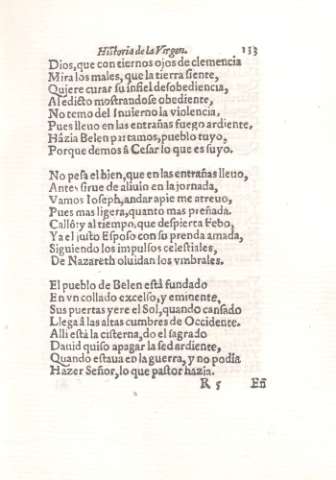 Historia de la Virgen. 133
Dios, que con tiernos ojos de clemencia
Mira los males, que la tierra siente,
Quiere curar su infiel desobediencia,
Al edicto mostrandose obediente,
No temo del Inuierno la violencia,
Pues lleuo en las entrañas fuego ardiente,
Házia Belen partamos, pueblo tuyo,
Porque demos â Cesar lo que es suyo.
No pesa el bien, que en las entrañas lleuo,
Antes sirue de aliuio en la jornada,
Vamos Ioseph, andar a pie me atreuo,
Pues mas ligera, quanto mas preñada.
Callô; y al tiempo, que despierta Febo,
Ya el justo Esposo con su prenda amada,
Siguiendo los impulsos celestiales,
De Nazareth oluidan los vmbrales.
El pueblo de Belen està fundado
En vn collado excelso, y eminente,
Sus puertas yere el Sol, quando cansado
Llega â las altas cumbres de Occidente.
Alli està la cisterna, do el sagrado
Dauid quiso apagar la sed ardiente,
Quando estaua en la guerra, y no podia
Hazer Señor, lo que pastor hazia.
R 5 En